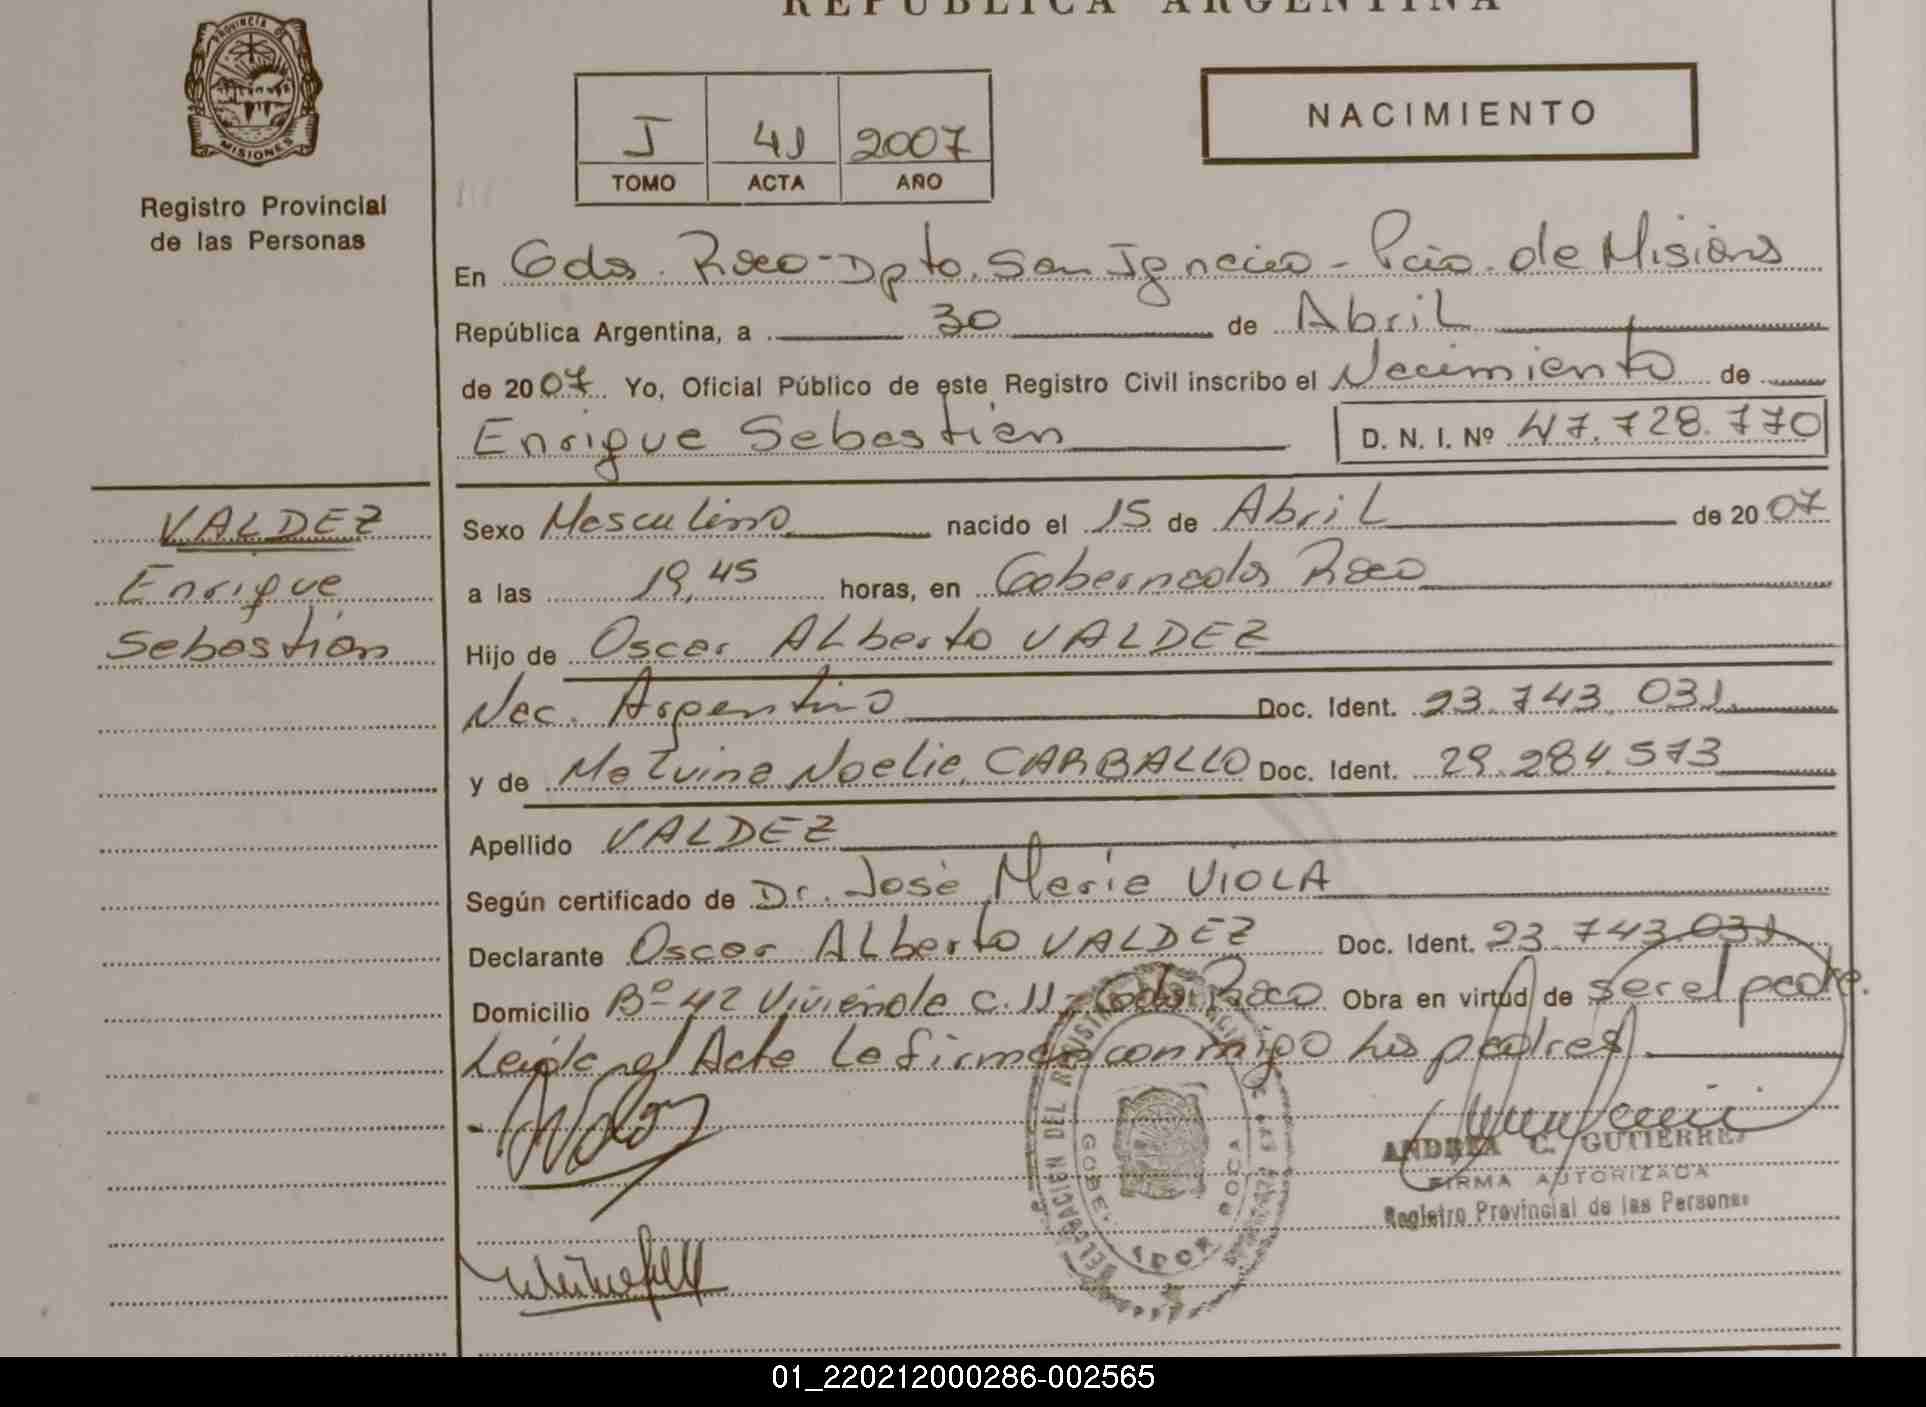 REPUBLICA ARGENTINA
PROVINCIA DE
MISIONES
Registro Provincial
de las Personas
I 41 2007
TOMO ACTA AÑO
NACIMIENTO
En Gdor. Roca - Dpto. San Ignacio - Pcia. de Misiones
República Argentina, a 30 de Abril
de 2007 Yo, Oficial Público de este Registro Civil inscribo el Nacimiento de
Enrique Sebastián D. N. I. Nº 47.728.770
VALDEZ
Enrique
Sebastián
Sexo Masculino nacido el 15 de Abril de 2007
a las 19,45 horas, en Gobernador Roca
Hijo de Oscar Alberto VALDEZ
Nac. Argentino Doc. Ident. 23.743.031
y de Malvina Noelia CARBALLO Doc. Ident. 29.284.573
Apellido VALDEZ
Según certificado de Dr. José María VIOLA
Declarante Oscar Alberto VALDEZ Doc. Ident. 23.743.031
Domicilio Bº 42 Vivienda C. 11 - Gdor Roca Obra en virtud de ser el padre.
Leída el Acta La firman conmigo los padres
DELEGACION DEL REGISTRO
ANDREA C. GUTIERREZ
FIRMA AUTORIZADA
Registro Provincial de las Personas
01_220212000286-002565